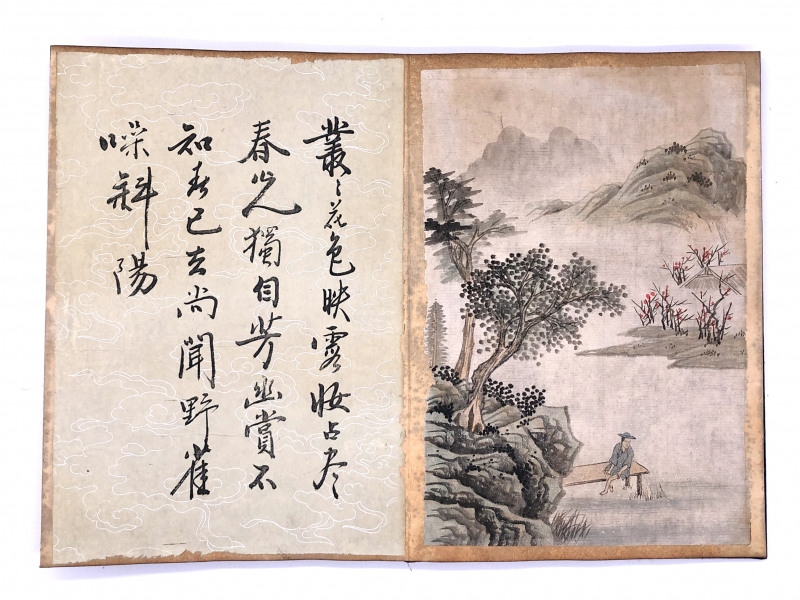 叢〻花色映霞妝占尽
春光獨自芳幽賞不
知春已去尚聞野雀
噪斜陽